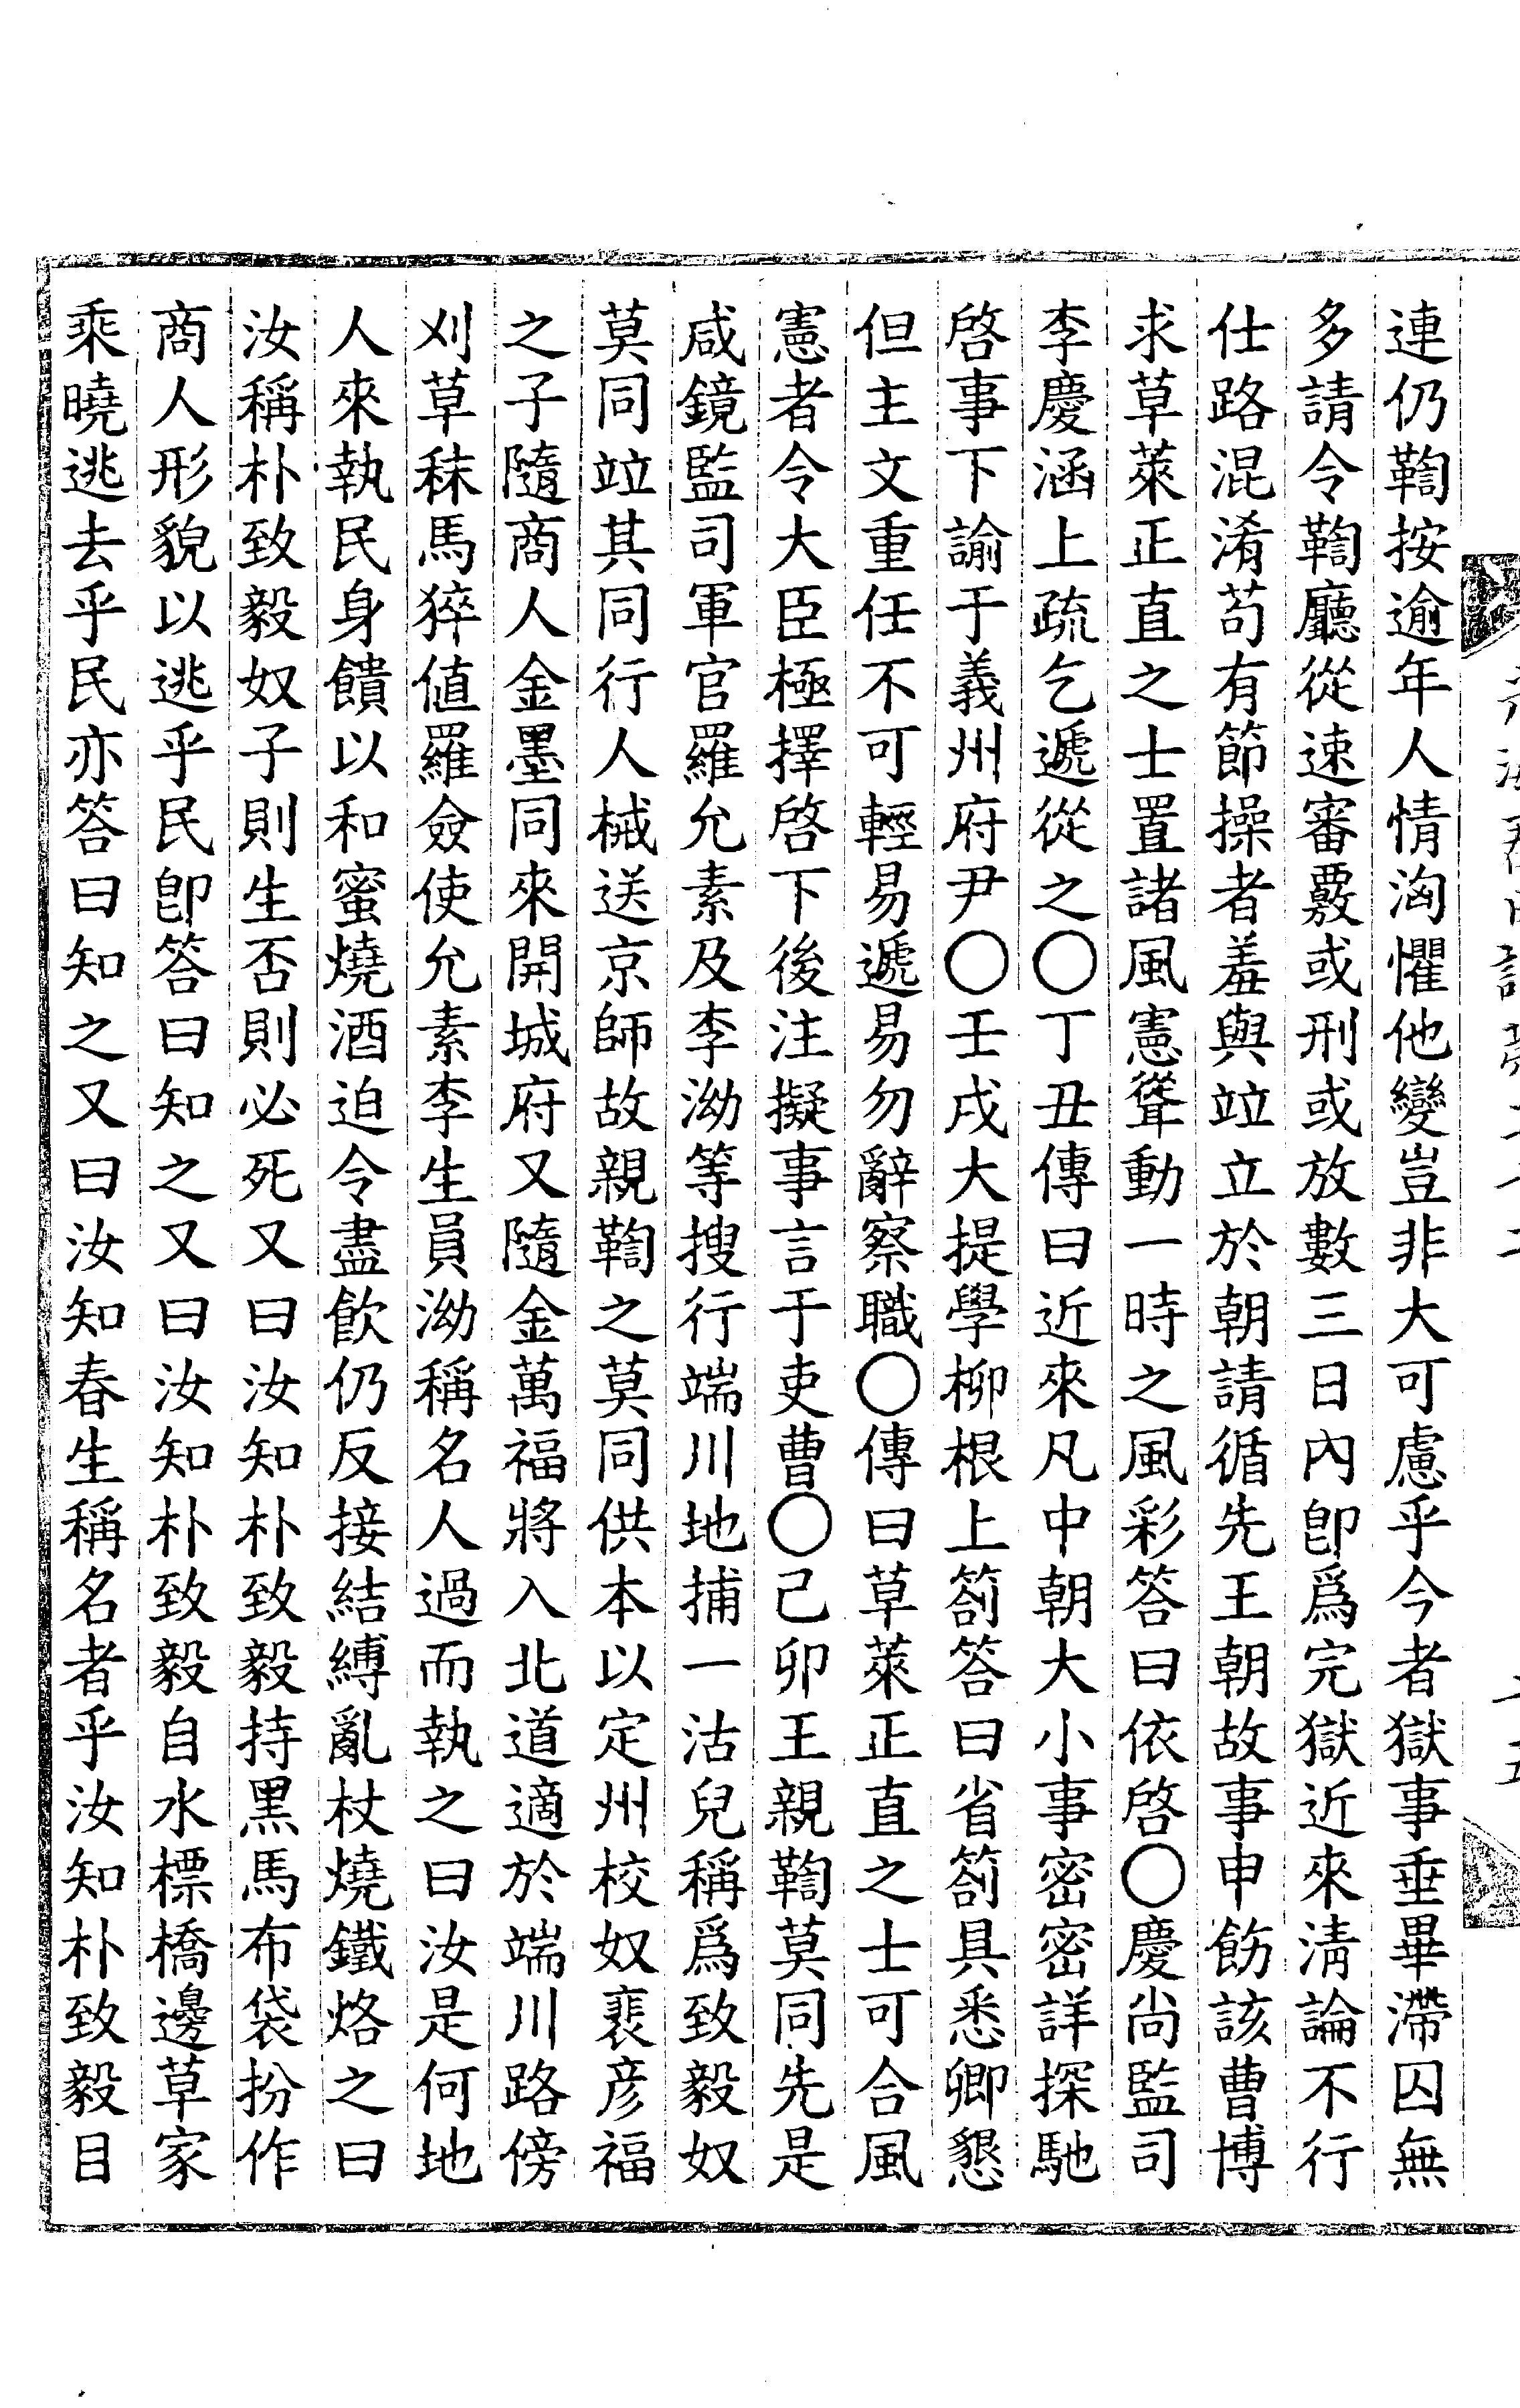 連仍鞫按逾年人情洶懼他變豈非大可慮乎今者獄事垂畢滯囚無
多請令鞫廳從速審覈或刑或放數三日內卽爲完獄近來淸論不行
仕路混淆苟有節操者羞與竝立於朝請循先王朝故事申飭該曹博
求草萊正直之士置諸風憲聳動一時之風彩答曰依啓〇慶尙監司
李慶涵上疏乞遞從之〇丁丑傳曰近來凡中朝大小事密密詳探馳
啓事下諭于義州府尹〇壬戌大提學柳根上箚答曰省箚具悉卿懇
但主文重任不可輕易遞易勿辭察職〇傳曰草萊正直之士可合風
憲者令大臣極擇啓下後注擬事言于吏曹〇己卯王親鞫莫同先是
咸鏡監司軍官羅允素及李泑等搜行端川地捕一沽兒稱爲致毅奴
莫同竝其同行人械送京師故親鞫之莫同供本以定州校奴裵彦福
之子隨商人金墨同來開城府又隨金萬福將入北道適於端川路傍
刈草秣馬猝値羅僉使允素李生員泑稱名人過而執之曰汝是何地
人來執民身饋以和蜜燒酒迫令盡飮仍反接結縛亂杖燒鐵烙之曰
汝稱朴致毅奴子則生否則必死又曰汝知朴致毅持黑馬布袋扮作
商人形貌以逃乎民卽答曰知之又曰汝知朴致毅自水標橋邊草家
乘曉逃去乎民亦答曰知之又曰汝知春生稱名者乎汝知朴致毅目